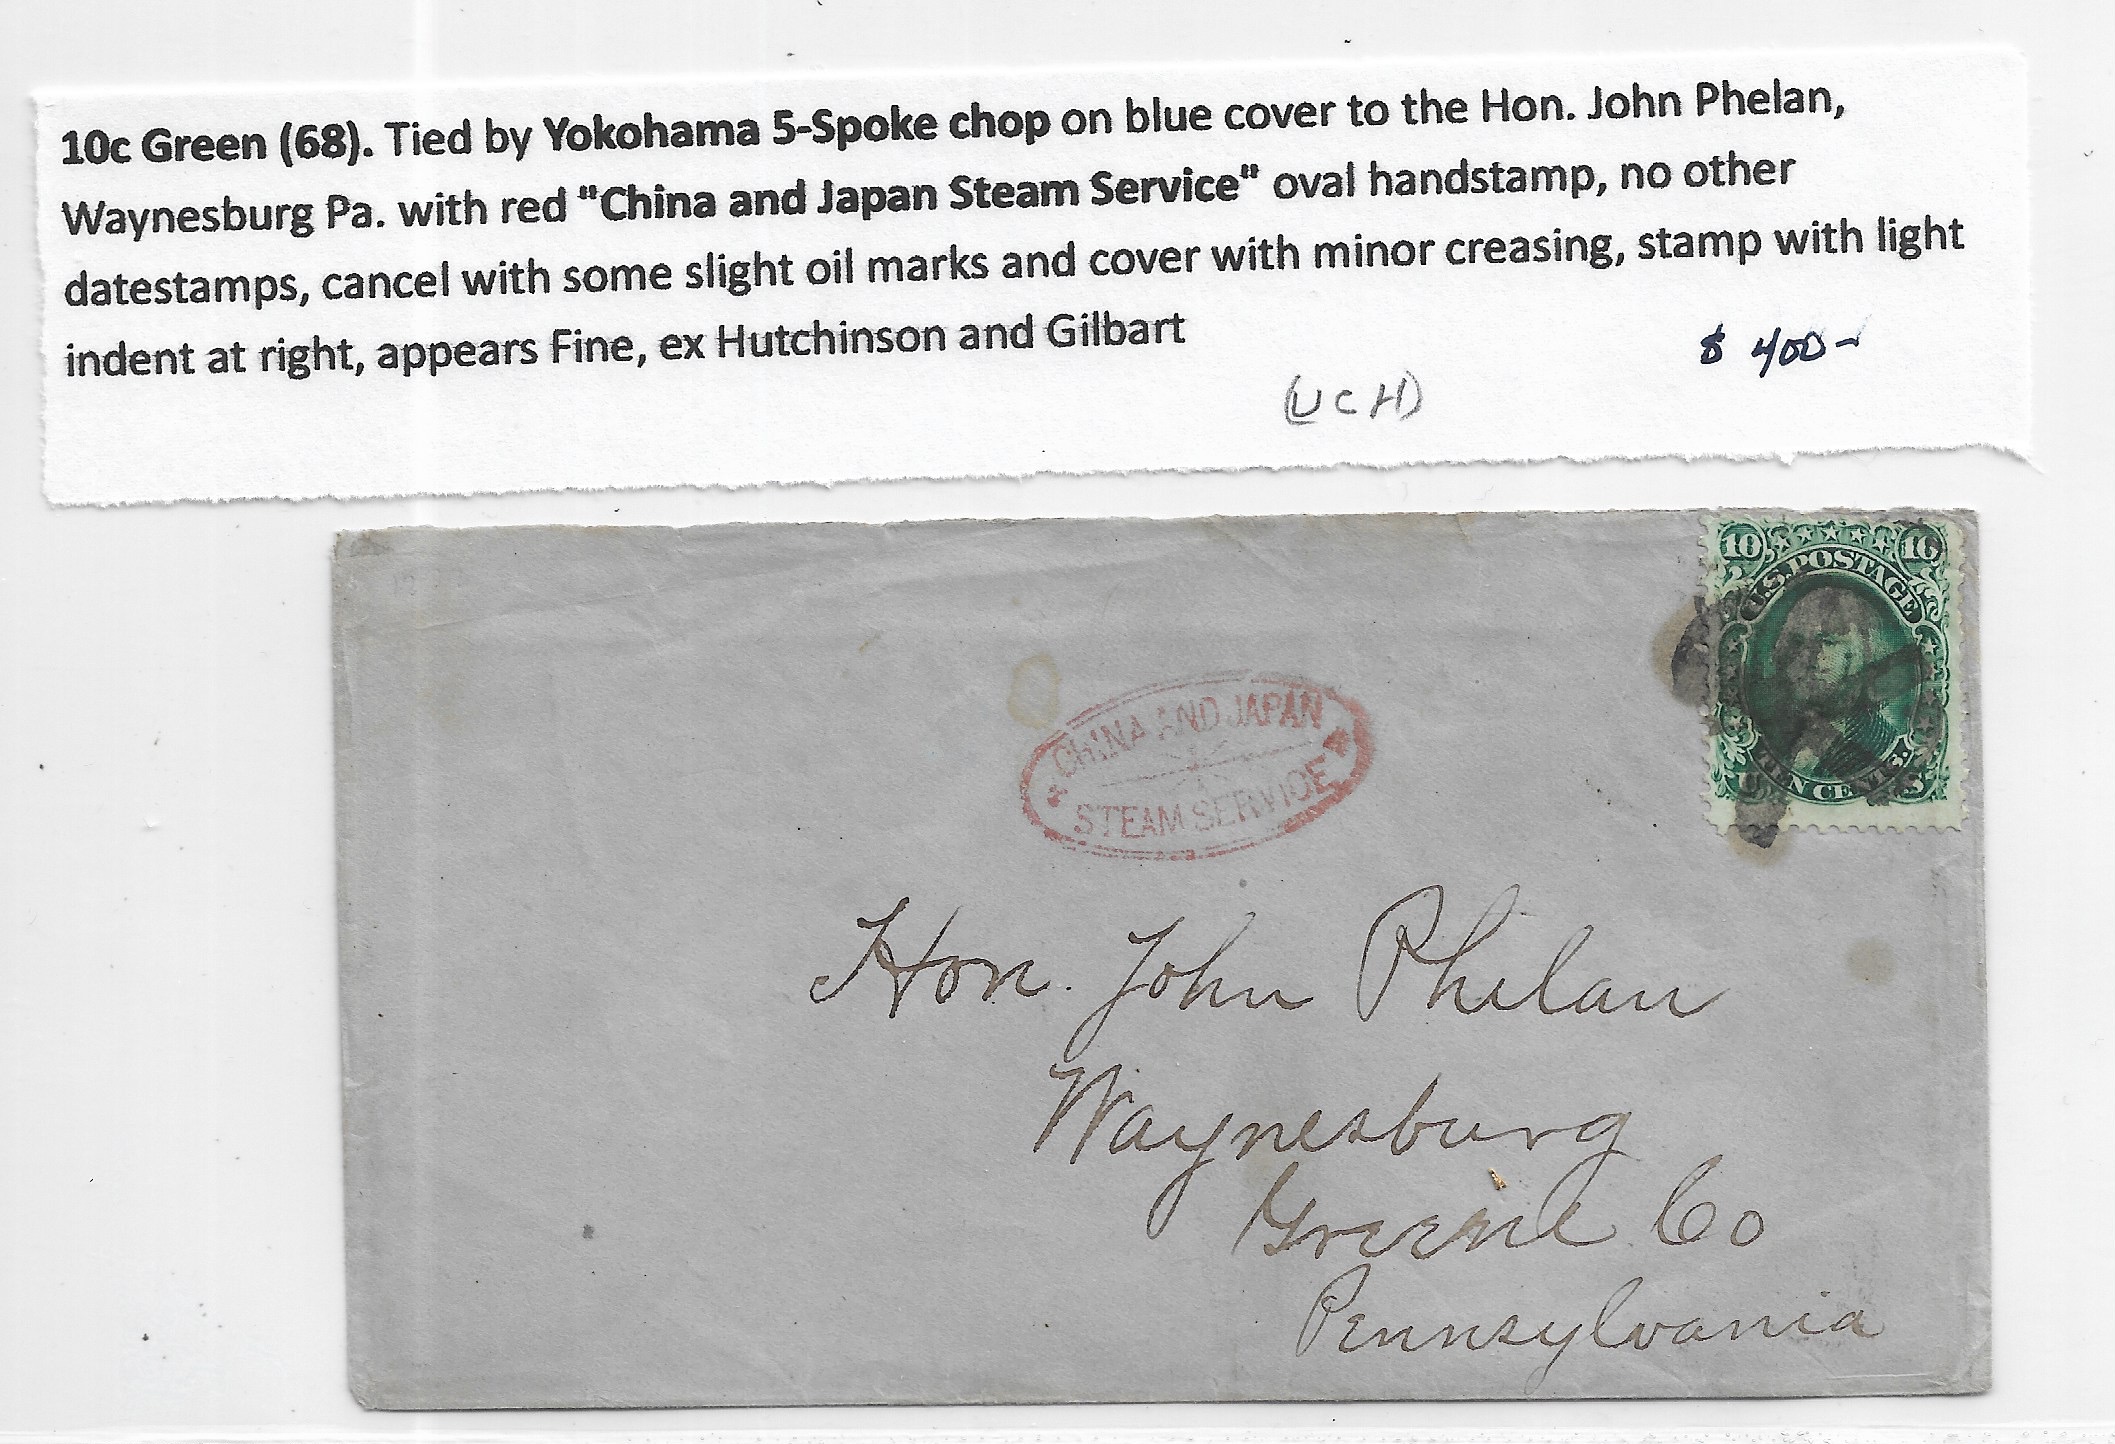 10c Green (68). Tied by Yokohama 5-Spoke chop on blue cover to the Hon. John Phelan,
Waynesburg Pa. with red "China and Japan Steam Service" oval handstamp, no other
datestamps, cancel with some slight oil marks and cover with minor creasing, stamp with light
indent at right, appears Fine, ex Hutchinson and Gilbart
$ 400-
(UCH)
10 10
U.S. POSTAGE
TEN CENTS
CHINA AND JAPAN
STEAM SERVICE
Hon. John Phelan
Waynesburg
Greene Co
Pennsylvania